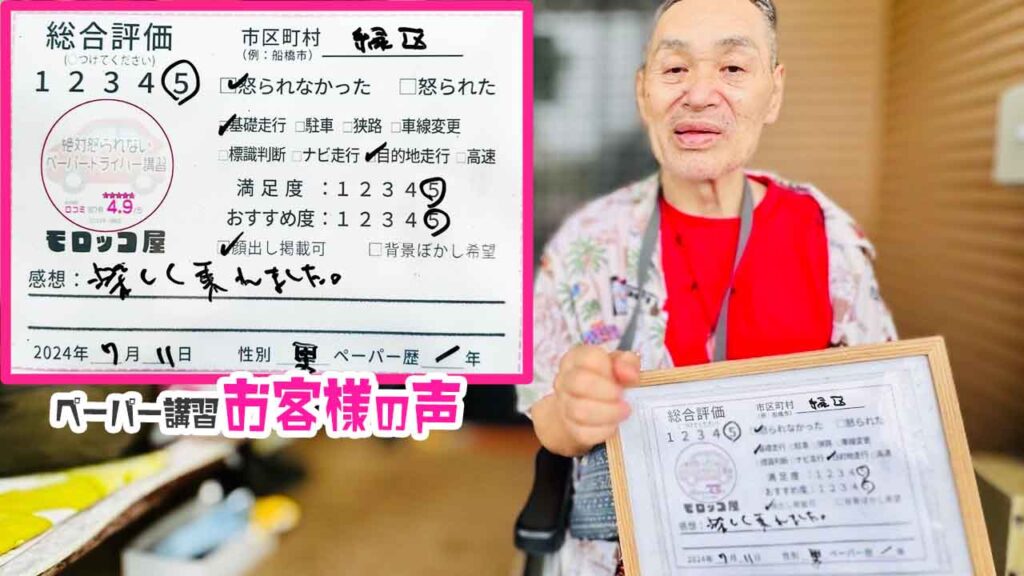 総合評価
(○つけてください)
1 2 3 4 5
市区町村
(例：船橋市)
緑区
□怒られなかった □怒られた
□基礎走行 □駐車 □狭路 □車線変更
□標識判断 □ナビ走行 □目的地走行 □高速
満足度：1 2 3 4 5
おすすめ度：1 2 3 4 5
□顔出し掲載可 □背景ぼかし希望
絶対怒られない
ペーパードライバー講習
★★★★★
口コミ 4.9/5
モロッコ屋
感想：楽しく乗れました。
2024年 7月 11日 性別 男 ペーパー歴 年
ペーパー講習 お客様の声
総合評価
1 2 3 4 5
市区町村
(例：船橋市)
緑区
□怒られなかった □怒られた
□基礎走行 □駐車 □狭路 □車線変更
□標識判断 □ナビ走行 □目的地走行 □高速
満足度：1 2 3 4 5
おすすめ度：1 2 3 4 5
□顔出し掲載可 □背景ぼかし希望
モロッコ屋
感想：楽しく乗れました。
2024年 7月 11日 性別 男 ペーパー歴 年